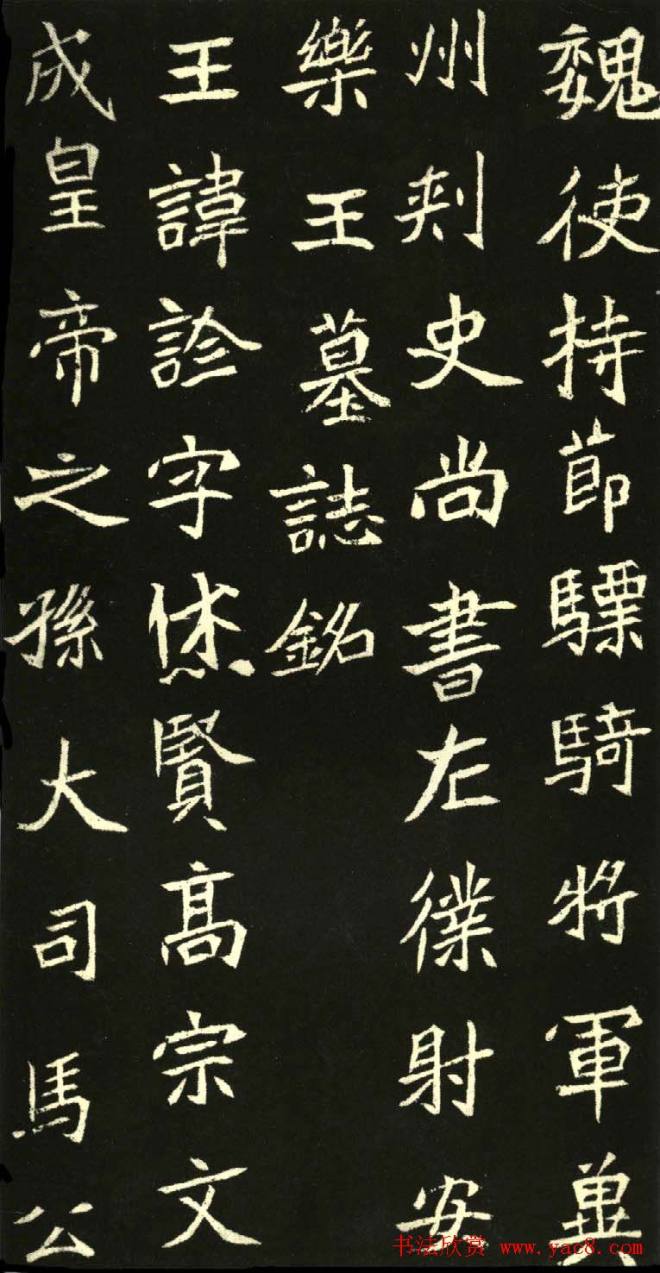 魏使持節驃騎將軍冀
州刾史尚書左僕射安
樂王墓誌銘
王諱詮字休賢高宗文
成皇帝之孫大司馬公
书法欣赏 www.yac8.com